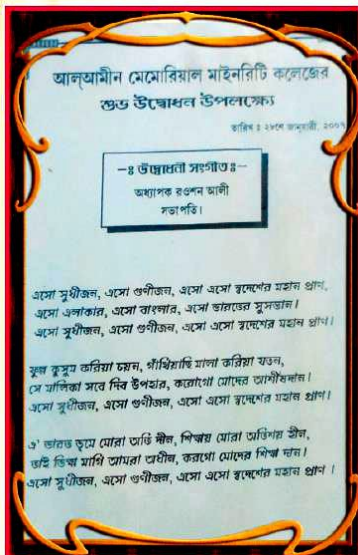 আল্আমীন মেমোরিয়াল মাইনরিটি কলেজের
শুভ উদ্বোধন উপলক্ষ্যে
তারিখ ঃ ২৮শে জানুয়ারী, ২০০৭
-ঃ উদ্বোধনী সংগীত ঃ-
অধ্যাপক রওশন আলী
সভাপতি।
এসো সুধীজন, এসো গুণীজন, এসো এসো স্বদেশের মহান প্রাণ,
এসো এলাকার, এসো বাংলার, এসো ভারতের সুসন্তান।
এসো সুধীজন, এসো গুণীজন, এসো এসো স্বদেশের মহান প্রাণ।
ফুল কুসুম করিয়া চয়ন, গাঁথিয়াছি মালা করিয়া যতন,
সে মালিকা সবে দিব উপহার, করোগো মোদের আশীষদান।
এসো সুধীজন, এসো গুণীজন, এসো এসো স্বদেশের মহান প্রাণ।
এ' ভারত ভূমে মোরা অতি দীন, শিক্ষায় মোরা অতিশয় হীন,
তাই ভিক্ষা মাগি আমরা অধীন, করগো মোদের শিক্ষা দান।
এসো সুধীজন, এসো গুণীজন, এসো এসো স্বদেশের মহান প্রাণ।